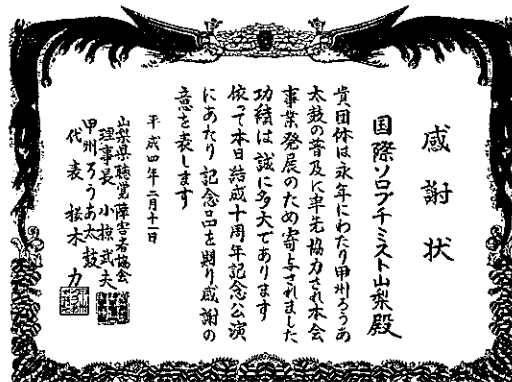 感謝状
国際ソロプチミスト山梨殿
貴団体は永年にわたり甲州ろうあ
太鼓の普及に率先協力され本会
事業発展のため寄与されました
功績は誠に多大であります
依って本日結成十周年記念公演
にあたり記念品を贈り感謝の
意を表します
平成四年二月十一日
山梨県聴覚障害者協会
理事長 小椋武夫
甲州ろうあ太鼓
代表 松木力